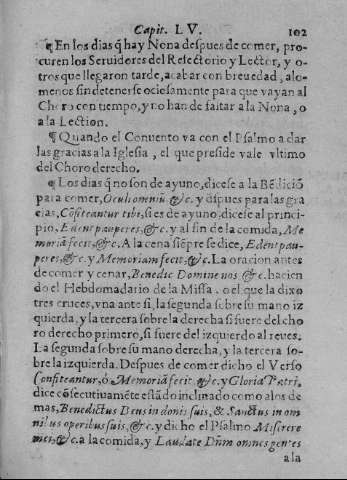 Capit. LV. 102
¶ En los dias q̃ hay Nona despues de comer, pro-
curen los Seruidores del Refectorio y Lector, y o-
tros que llegaron tarde, acabar con breuedad, alo-
menos sin detenerse ociosamente para que vayan al
Choro con tiempo, y no han de faltar a la Nona, o
a la Lection.
¶ Quando el Conuento va con el Psalmo a dar
las gracias a la Iglesia, el que preside vale vltimo
del Choro derecho.
¶ Los dias q̃ no son de ayuno, dicese a la Bẽdiciõ
para comer, Oculi omniũ, &c. y dspues para las gra
cias, Cõfiteantur tibi, si es de ayuno, dicese al princi-
pio, Edent pauperes, &c. y al fin de la comida, Me
moriã fecit, &c. A la cena siẽpre se dice, Edent pau-
peres, &c. y Memoriam fecit, &c. La oracion antes
de comer y cenar, Benedic Domine nos, &c. hacien
do el Hebdomadario de la Missa, o el que la dixo
tres cruces, vna ante si, la segunda sobre su mano iz
quierda, y la tercera sobre la derecha si fuere del cho
ro derecho primero, si fuere del izquierdo al reues.
La segunda sobre su mano derecha, y la tercera so-
bre la izquierda. Despues de comer dicho el Verso
Confiteantur, ò Memoriã fecit, &c. y Gloria Patri,
dice cõsecutiuamẽte estãdo inclinado como a los de
mas, Benedictus Deus in donis suis, & Sanctus in om
nibus operibus suis, &c. y dicho el Psalmo Miserere
mei, &c. a la comida, y Laudate Dũm omnes gentes
a la